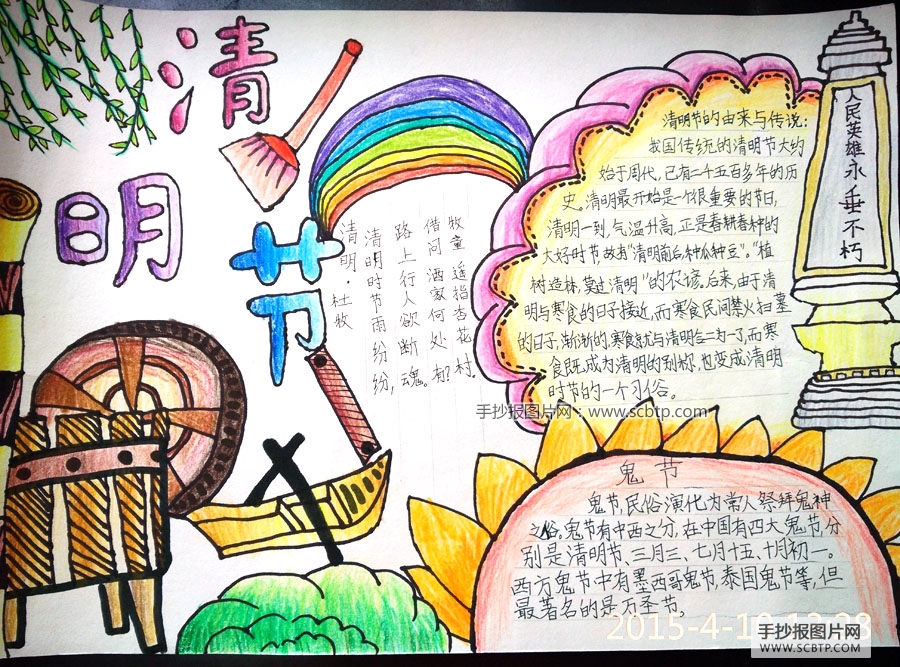 清明节
清明·杜牧
清明时节雨纷纷,
路上行人欲断魂。
借问酒家何处有?
牧童遥指杏花村.
清明节的由来与传说:
我国传统的清明节大约
始于周代,已有二千五百多年的历
史。清明最开始是一个很重要的节日,
清明一到,气温升高,正是春耕春种的
大好时节,故有"清明前后,种瓜种豆"。"植
树造林,莫过清明"的农谚。后来,由于清
明与寒食的日子接近,而寒食民间禁火扫墓
的日子,渐渐的,寒食就与清明合二为一了,而寒
食既成为清明的别称,也变成清明
时节的一个习俗。
人民英雄永垂不朽
手抄报图片网:www.scbtp.com
鬼节
鬼节,民俗演化为常人祭拜鬼神
之俗,鬼节有中西之分,在中国有四大鬼节,分
别是清明节、三月三、七月十五、十月初一。
西方鬼节中有墨西哥鬼节,泰国鬼节等,但
最著名的是万圣节。
2015-4-1
手抄报图片网
WWW.SCBTP.COM